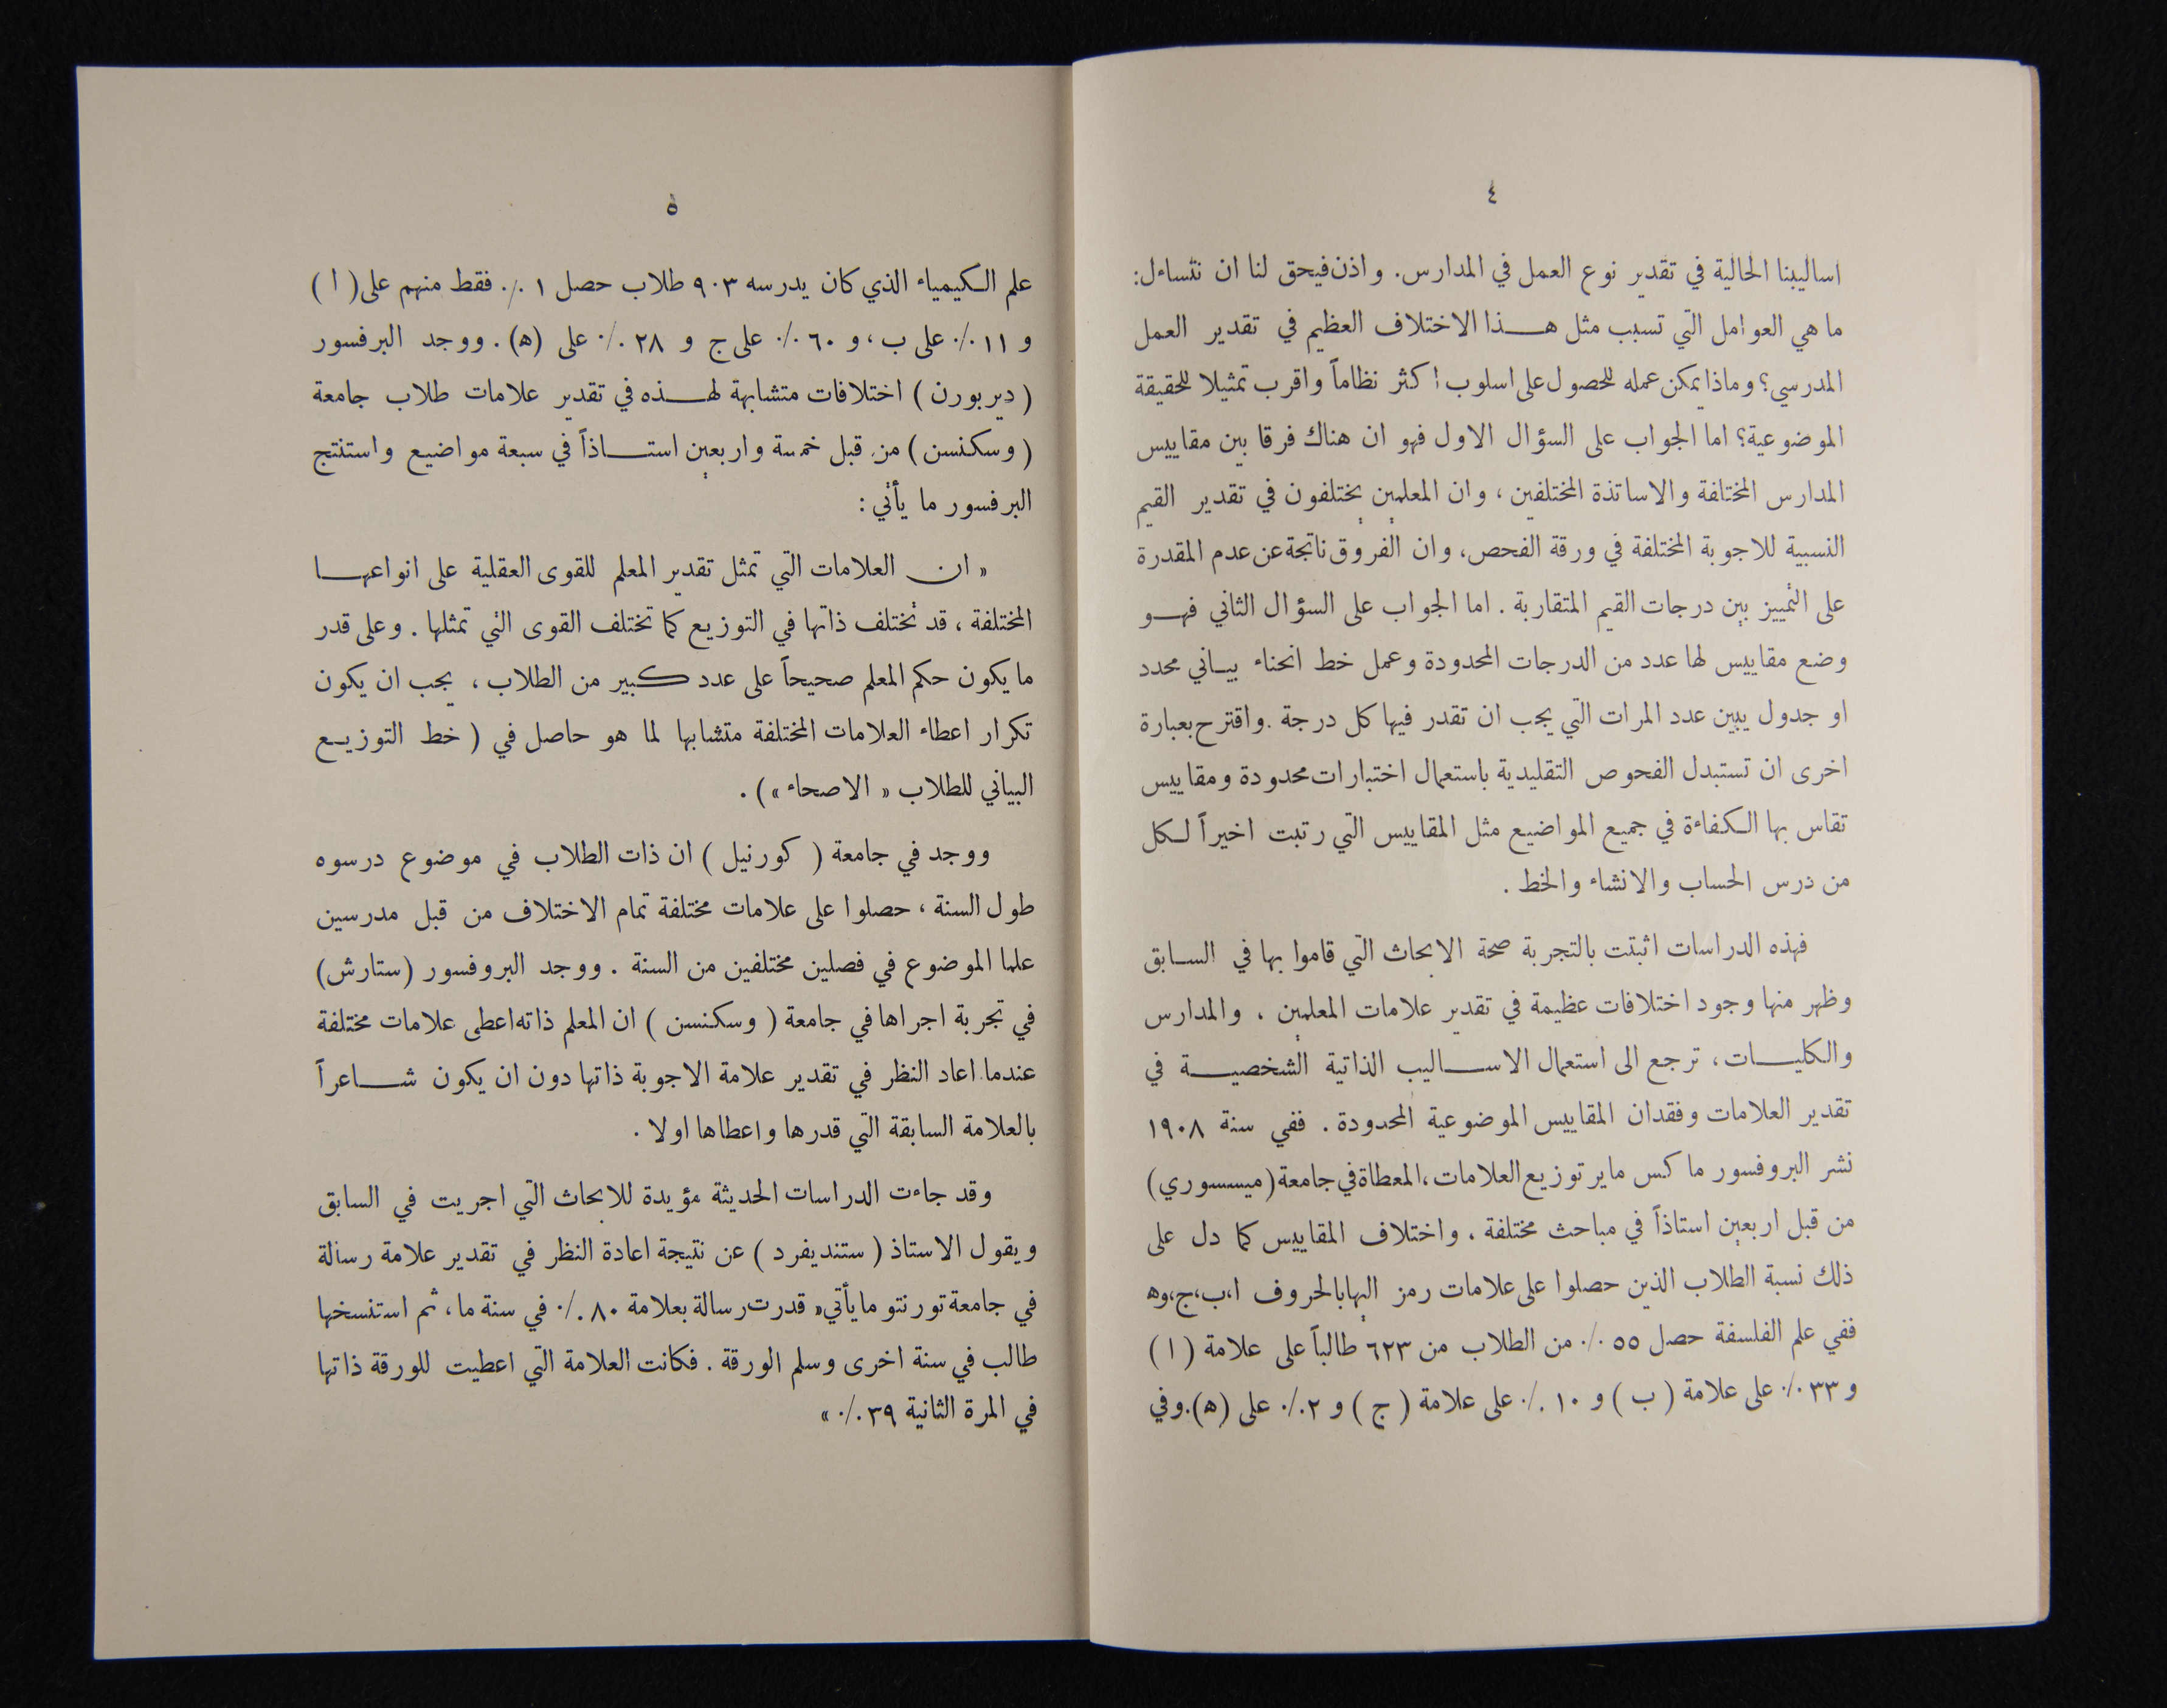 ٤
اساليبنا الحالية في تقدير نوع العمل في المدارس. واذن فيحق لنا ان نتساءل:
ما هي العوامل التي تسبب مثل هـذا الاختلاف العظيم في تقدير العمل
المدرسي؟ وماذا يمكن عمله للحصول على اسلوب اكثر نظاماً واقرب تمثيلا للحقيقة
الموضوعية؟ اما الجواب على السؤال الاول فهو ان هناك فرقا بين مقاييس
المدارس المختلفة والاساتذة المختلفين، وان المعلمين يختلفون في تقدير القيم
النسبية للاجوبة المختلفة في ورقة الفحص، وان الفروق ناتجة عن عدم المقدرة
على التمييز بين درجات القيم المتقاربة . اما الجواب على السؤال الثاني فهـو
وضع مقاييس لها عدد من الدرجات المحدودة وعمل خط انحناء بيـاني محدد
او جدول يبين عدد المرات التي يجب ان تقدر فيها كل درجة .واقترح بعبارة
اخرى ان تستبدل الفحوص التقليدية باستعمال اختبارات محدودة ومقاييس
تقاس بها الكفاءة في جميع المواضيع مثل المقاييس التي رتبت اخيراً لـكل
من درس الحساب والانشاء والخط .
فهذه الدراسات اثبتت بالتجربة صحة الابحاث التي قاموا بها في السـابق
وظهر منها وجود اختلافات عظيمة في تقدير علامات المعلمين ، والمدارس
والكليـات، ترجع الى استعمال الاسـاليب الذاتية الشخصيـة في
تقدير العلامات وفقدان المقاييس الموضوعية المحدودة . ففي سنة ١٩٠٨
نشر البروفسور ماكس ماير توزيع العلامات،المعطاة في جامعة (ميسسوري)
من قبل اربعين استاذاً في مباحث مختلفة ، واختلاف المقاييس كما دل على
ذلك نسبة الطلاب الذين حصلوا على علامات رمز اليها بالحروف ا،ب،ج،وه
ففي علم الفلسفة حصل ٥٥ ٪ من الطلاب من ٦٢٣ طالباً على علامة ( ا )
و ٣٣ ٪ على علامة ( ب ) و ١٠ ٪ على علامة ( ج ) و ٢ ٪ على (ه).وفي
٥
علم الكيمياء الذي كان يدرسه ٩٠٣ طلاب حصل ١ ٪ فقط منهم على ( ا )
و ١١ ٪ على ب ، و ٦٠ ٪ على ج و ٢٨ ٪ على (ه) . ووجد البرفسور
( ديربورن ) اختلافات متشابهة لهـذه في تقدير علامات طلاب جامعة
( وسكنسن ) من قبل خمسة واربعين استـاذاً في سبعة مواضيع واستنتج
البرفسور ما يأتي :
« ان العلامات التي تمثل تقدير المعلم للقوى العقلية على انواعهـا
المختلفة ، قد تختلف ذاتها في التوزيع كما تختلف القوى التي تمثلها . وعلى قدر
ما يكون حكم المعلم صحيحاً على عدد كبير من الطلاب ، يجب ان يكون
تكرار اعطاء العلامات المختلفة متشابها لما هو حاصل في ( خط التوزيـع
البياني للطلاب « الاصحاء ») .
ووجد في جامعة ( كورنيل ) ان ذات الطلاب في موضوع درسوه
طول السنة ، حصلوا على علامات مختلفة تمام الاختلاف من قبل مدرسين
علما الموضوع في فصلين مختلفين من السنة . ووجد البروفسور (ستارش)
في تجربة اجراها في جامعة ( وسكنسن ) ان المعلم ذاته اعطى علامات مختلفة
عندما اعاد النظر في تقدير علامة الاجوبة ذاتها دون ان يكون شـاعراً
بالعلامة السابقة التي قدرها واعطاها اولا .
وقد جاءت الدراسات الحديثة مؤيدة للابحاث التي اجريت في السابق
ويقول الاستاذ ( ستنديفرد ) عن نتيجة اعادة النظر في تقدير علامة رسالة
في جامعة تورنتو ما يأتي« قدرت رسالة بعلامة ٨٠ ٪ في سنة ما، ثم استنسخها
طالب في سنة اخرى وسلم الورقة . فكانت العلامة التي اعطيت للورقة ذاتها
في المرة الثانية ٣٩ ٪ »